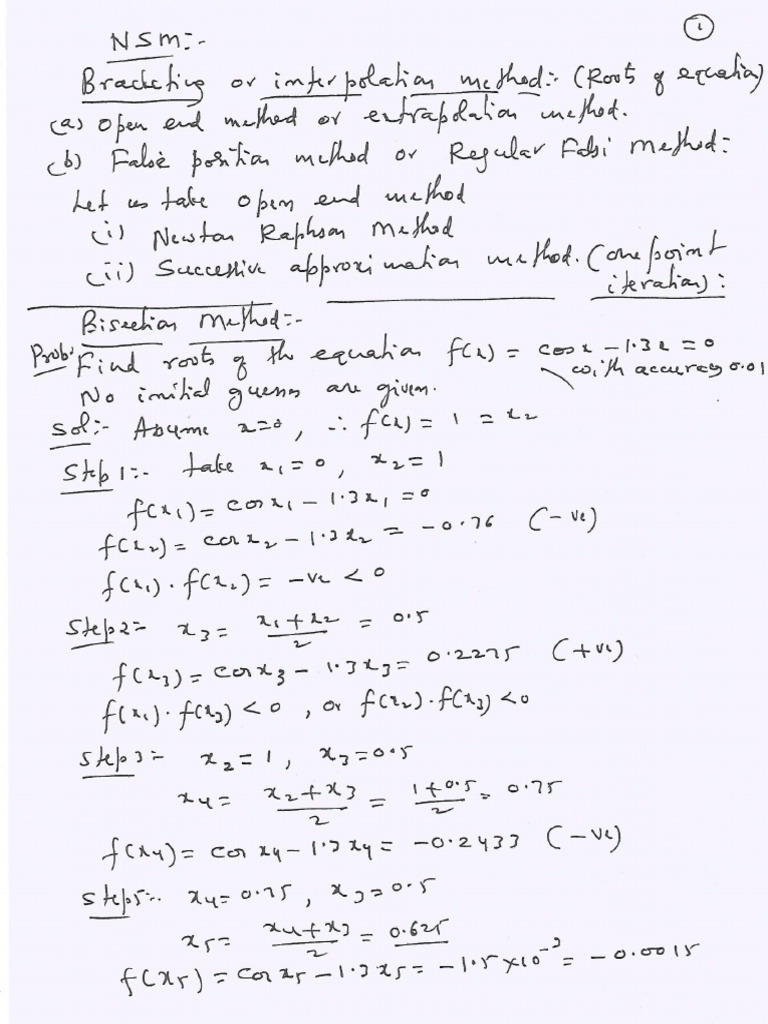 1
NSM:-
Bracketing or interpolation method:- (Roots of equation)
(a) open end method or extrapolation method.
(b) False position method or Regular Falsi Method:-
Let us take open end method
(i) Newton Raphson Method
(ii) Successive approximation method. (one point
iteration):
Bisection Method:-
Prob: Find roots of the equation f(x) = cosx - 1.3x = 0
with accuracy 0.01
No initial guesses are given.
Sol:- Assume x=0, ∴ f(x) = 1 = x2
Step 1:- take x1 = 0, x2 = 1
f(x1) = cosx1 - 1.3x1 = 0
f(x2) = cosx2 - 1.3x2 = -0.76 (-ve)
f(x1) . f(x2) = -ve < 0
Step 2:- x3 = x1+x2/2 = 0.5
f(x3) = cosx3 - 1.3x3 = 0.2275 (+ve)
f(x1) . f(x3) < 0, or f(x2) . f(x3) < 0
Step 3:- x2 = 1, x3 = 0.5
x4 = x2+x3/2 = 1+0.5/2 = 0.75
f(x4) = cos x4 - 1.3x4 = -0.2433 (-ve)
Step 5:- x4 = 0.75, x3 = 0.5
x5 = x4+x3/2 = 0.625
f(x5) = cosx5 - 1.3x5 = -1.5 × 10^-3 = -0.0015